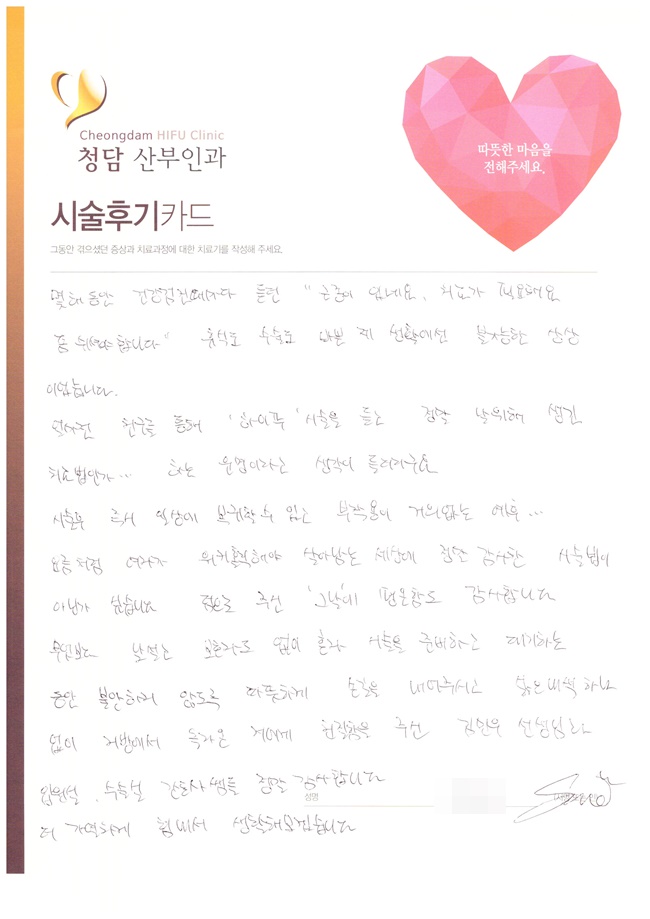 Cheongdam HIFU Clinic
청담 산부인과
따뜻한 마음을
전해주세요.
시술후기카드
그동안 겪으셨던 증상과 치료과정에 대한 치료기를 작성해 주세요.
몇해 동안 건강검진때마다 들린 "근종이 있네요. 치료가 필요해요
좀 쉬셔야 합니다" 휴식도 수술도 바쁜 제 선택에선 불가능한 상상
이었습니다.
친구를 통해 '하이푸' 시술을 듣는 정말 날위해 생긴
치료법인가... 하는 운명이라는 생각이 들더라구요
시술후 즉시 일상에 복귀할 수 있는 부작용이 거의없는 예후...
요즘처럼 여자가 살아남는 세상에 정말 감사한 시술법이
아닌가 싶습니다 주신 평온함도 감사합니다
무엇보다 보호자도 없이 혼자 시술을 준비하고 대기하는
동안 불안하지 않도록 따뜻하게 손길을 내어주시고 싫은내색 하나
없이 지방에서 올라온 저에게 친절함을 주신 선생님과
입원실, 수술실 간호사쌤들 정말 감사합니다
성명
더 힘내서